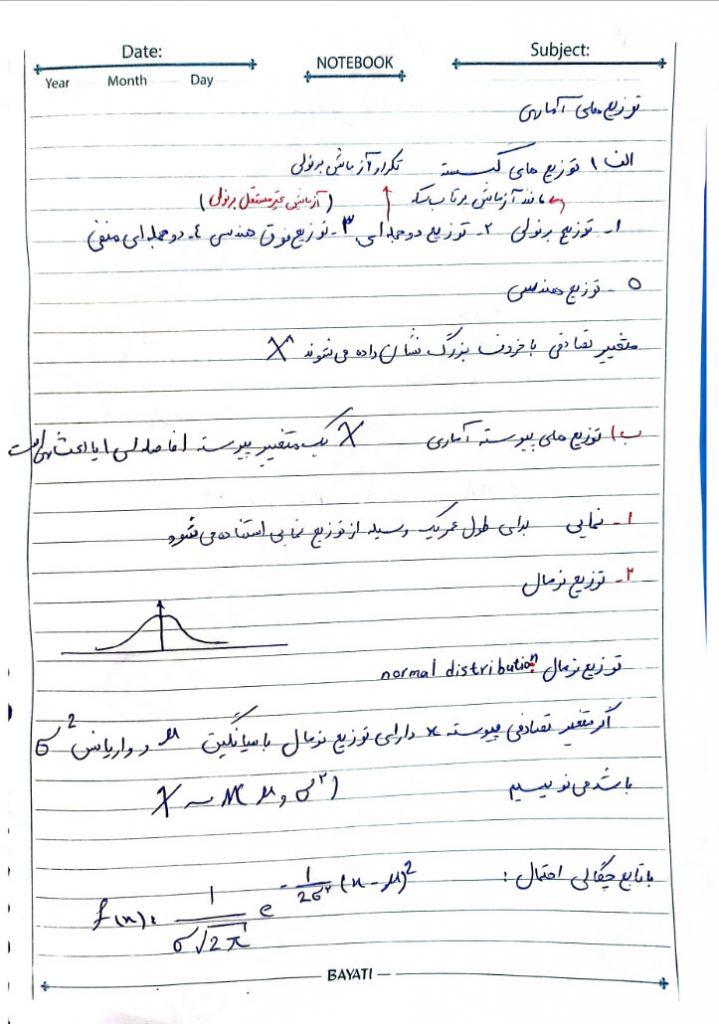 Date:
Year Month Day
NOTEBOOK
Subject:
توزیع های آماری
الف) توزیع های گسسته تکرار آزمایش برنولی
مانند آزمایش پرتاب سکه (آزمایش غیرمستقل برنولی)
۱- توزیع برنولی ۲- توزیع دوجمله ای ۳- توزیع فوق هندسی ٤- دوجمله ای منفی
٥- توزیع هندسی
متغیر تصادفی با حروف بزرگ نشان داده می شوند X
ب) توزیع های پیوسته آماری X یک متغیر پیوسته (فاصله ای) یا اعشاری است
۱- نمایی برای طول عمر یک وسیله از توزیع نمایی استفاده می شود
۲- توزیع نرمال
توزیع نرمال normal distribution
اگر متغیر تصادفی پیوسته x دارای توزیع نرمال با میانگین μ و واریانس σ²
باشد می نویسیم X ~ N(μ, σ²)
با تابع چگالی احتمال : f(x) = 1/(σ√2π) e^(-1/2σ² (x-μ)²)
BAYATI